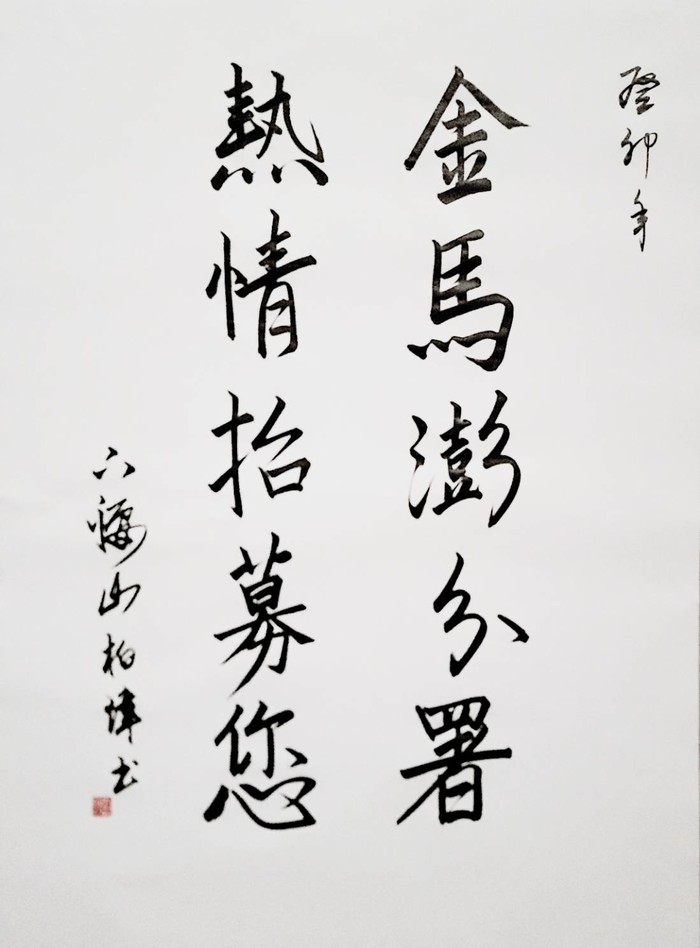 癸卯年
金馬澎分署
熱情招募您
山柏煒書